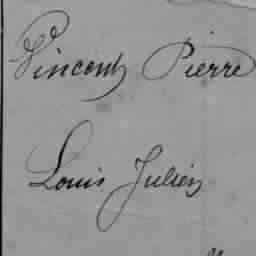 Vincent Pierre
Louis Julien